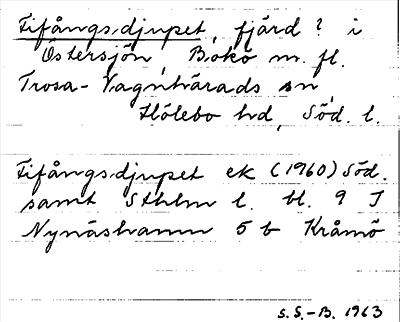 Fifångsdjupet, fjärd? i
Östersjön, Bokö m. fl.
Trosa-Vagnhärads sn,
Hölebo hd, Söd. l.
Fifångsdjupet ek (1960) Söd.
samt Sthlm l. bl. 9 I
Nynäshamn 5 b Kråmö
S.S.-B. 1963